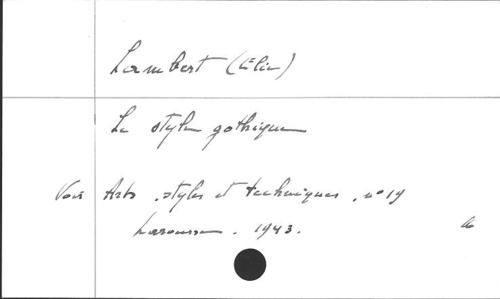 Lambert (Élie)
Le style gothique
Voir Arts, styles et techniques, n° 19
Larousse. 1943.